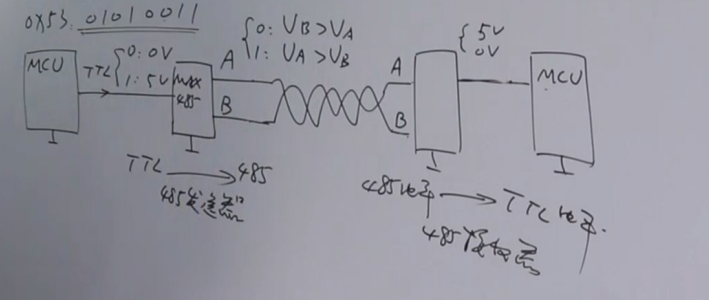 0X53: 01010011
MCU
TTL
0: 0V
1: 5V
max
485
A
B
0: UB>UA
1: UA>UB
A
B
5V
0V
MCU
TTL → 485
485发送器
485电平 → TTL电平.
485接收器